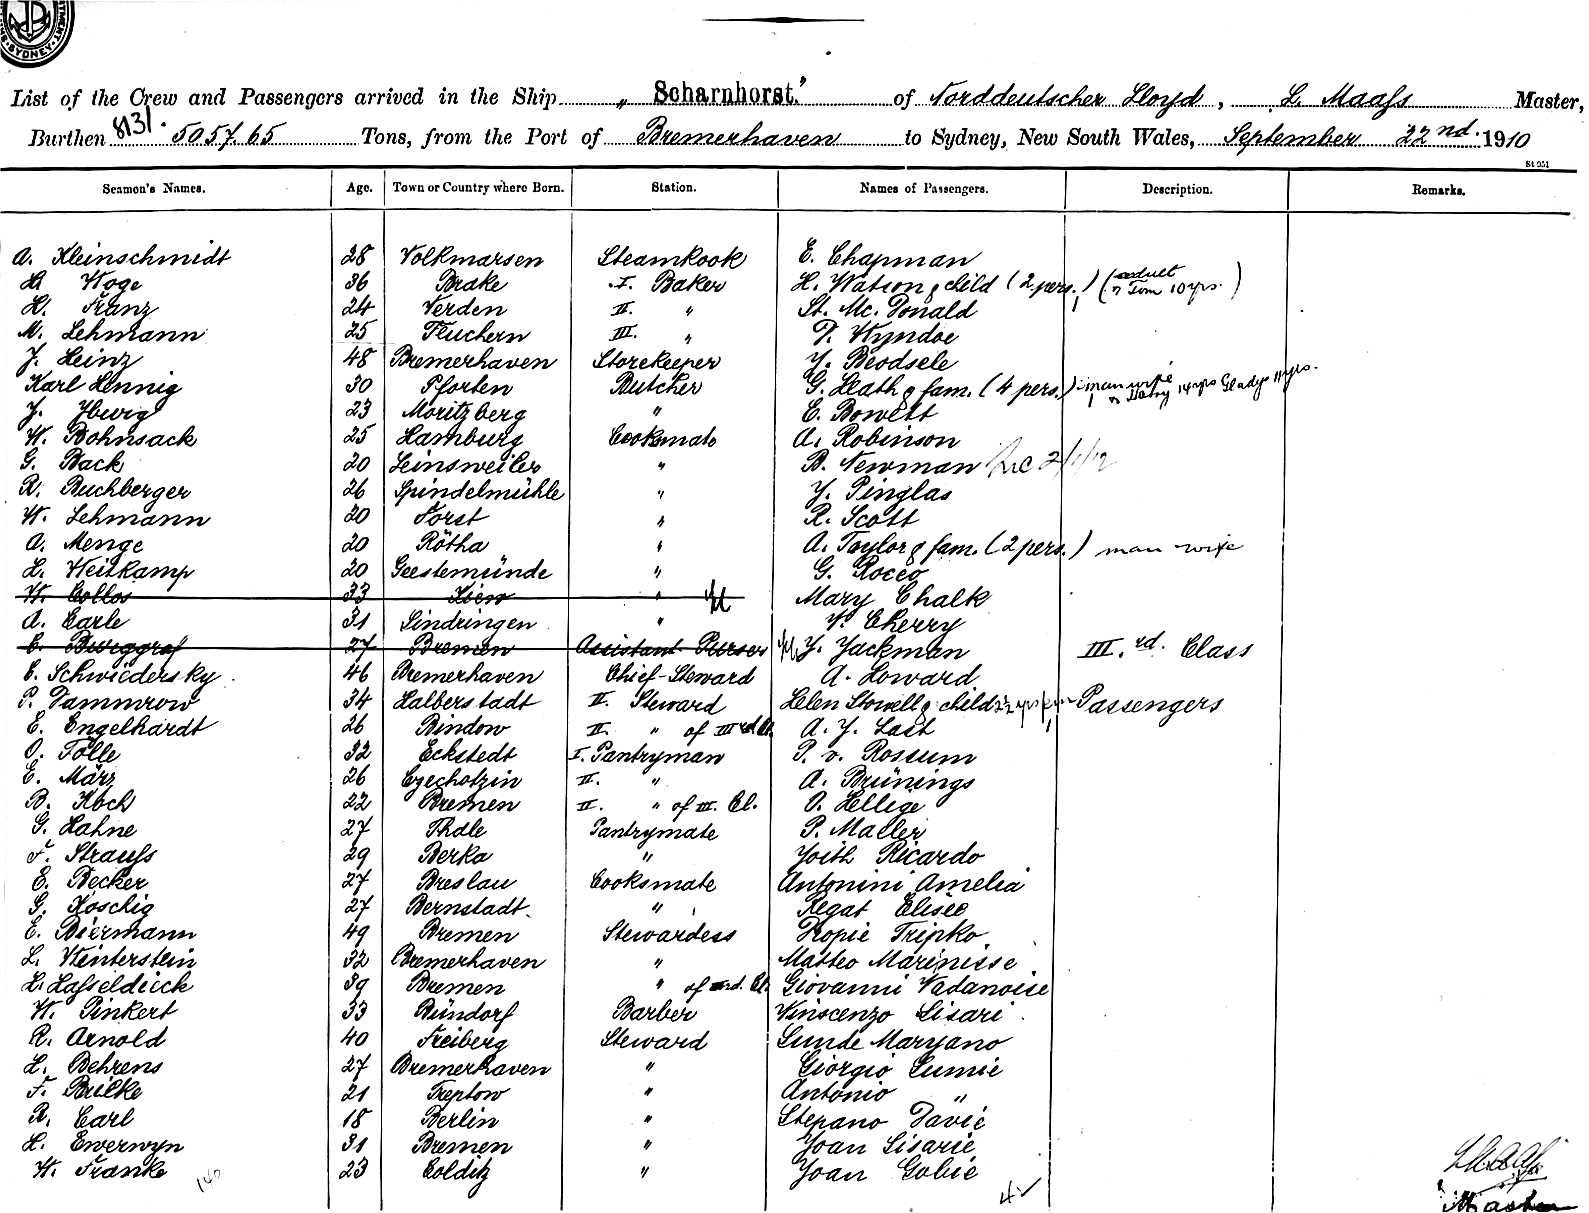 SYDNEY
List of the Crew and Passengers arrived in the Ship „Scharnhorst.” of Norddeutscher Lloyd, L. Maaſs Master,
Burthen 8131. 5057.65 Tons, from the Port of Bremerhaven to Sydney, New South Wales, September 22nd. 1910
St 951
Seamen's Names. Age. Town or Country where Born. Station. Names of Passengers. Description. Remarks.
A. Kleinschmidt 28 Volkmarsen Steamkook E. Chapman
H. Woge 36 Brake I. Baker H. Watson & child (2 pers.) (adult Tom 10 yrs.)
H. Franz 24 Verden II. " St. Mc. Donald
M. Lehmann 25 Fluchern III. " P. Wyndoe
J. Heinz 48 Bremerhaven Storekeeper Y. Beodsele
Karl Hennig 30 Pforten Butcher G. Heath & fam. (4 pers.) man wife Harry 14 yrs Gladys 11 yrs.
J. Iburg 23 Moritzberg " E. Bowett
W. Bohnsack 25 Hamburg Cooksmate A. Robinson
G. Back 20 Leinsweiler " B. Newman
R. Buchberger 26 Spindelmühle " Y. Pinglas
W. Lehmann 20 Forst " R. Scott
A. Menge 20 Rötha " A. Taylor & fam. (2 pers.) man wife
H. Weitkamp 20 Geestemünde " G. Rocco
W. Collos 33 Kiew " Mary Chalk
A. Earle 31 Sindringen " V. Cherry
C. Burggraf 27 Bremen Assistant Purser Y. Jackman III.rd. Class
C. Schwiedersky 46 Bremerhaven Chief-Steward A. Howard
P. Tammrow 34 Halberstadt II. Steward Helen Stowell & child Passengers
E. Engelhardt 26 Bindow II. " of IIIrd Cl. A. Y. Last
O. Tölle 32 Eckstedt I. Pantryman P. v. Rossum
E. März 26 Czechotzin II. " A. Brünings
B. Koch 22 Bremen II. " of III. Cl. O. Hellige
G. Hahne 27 Thale Pantrymate P. Maller
F. Strauſs 29 Berka " Yoith Ricardo
E. Becker 27 Breslau Cooksmate Antonini Amelia
G. Koschig 27 Bernstadt " Regat Elisee
E. Biermann 49 Bremen Stewardess Kopie Tripko
L. Winterstein 32 Bremerhaven " Matteo Marinisse
L. Haſseldieck 39 Bremen " of rd. Cl. Giovanni Vadanoise
W. Pinkert 33 Bündorf Barber Vinscenzo Lisari
R. Arnold 40 Freiberg Steward Sunde Maryano
H. Behrens 27 Bremerhaven " Giorgio Lumie
F. Brilke 21 Treptow " Antonio "
R. Carl 18 Berlin " Stepano Davie
H. Ewerwyn 31 Bremen " Yoan Lisarie
W. Franke 23 Colditz " Yoan Gobie
L. Maaſs
Master